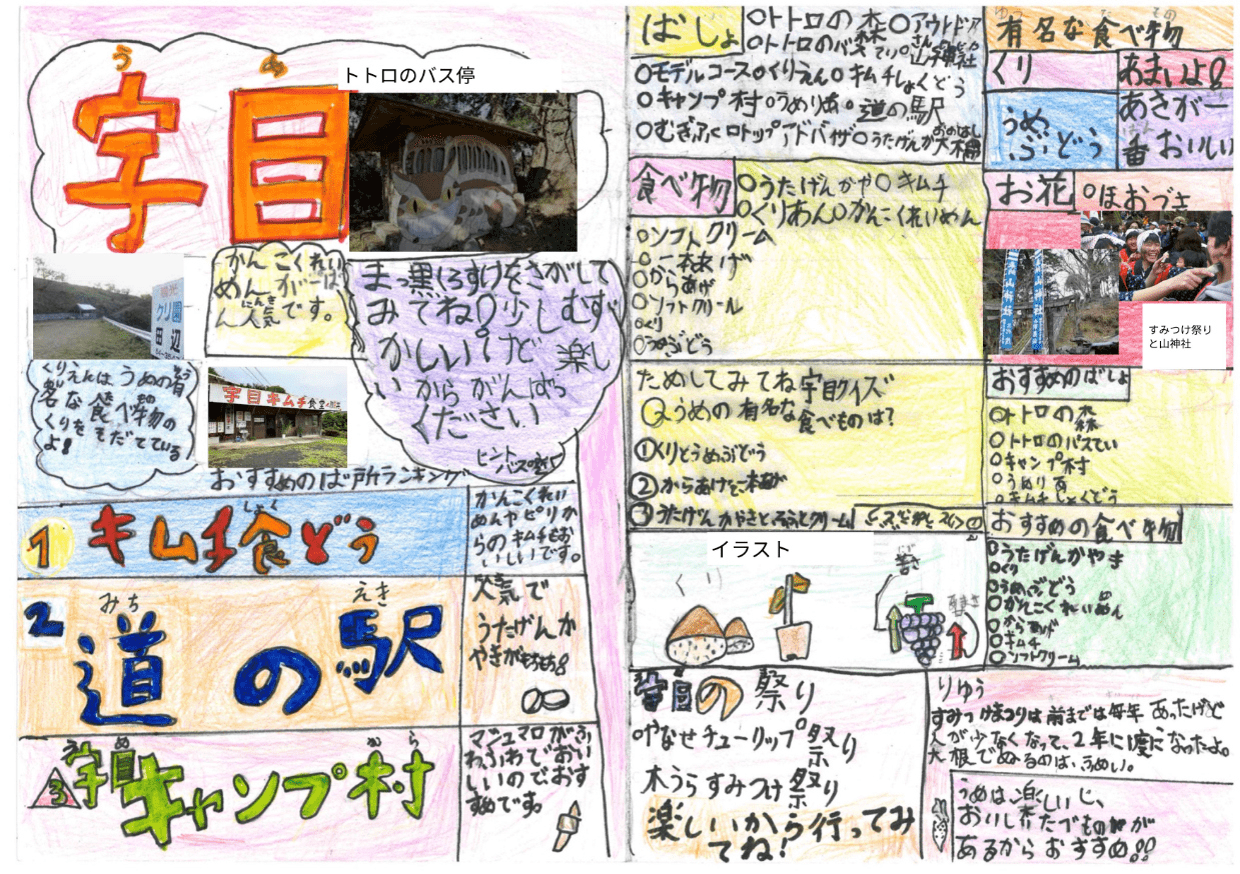 宇目
うめ
トトロのバス停
クリ園
田辺
かんこくれい
めんがーば
ん人気です。
にんき
まっ黒くろすけをさがして
みてね!少しむずかしい
かしいけど楽し
いからがんばっ
てください
ヒント
くりえんはうめの有
名な食べ物の
くりをそだてている
よ!
宇目キムチ食堂
おすすめのば所ランキング
1 キムチ食どう
しょく
かんこくれい
めんやピリか
らのキムチもお
いしいです。
2 道の駅
みち えき
人気で
うたげんか
やきがもちもち!!
3 宇目キャンプ村
うめ から
マシュマロがふ
わふわでおい
しいのでおす
すめです。
ばしょ
○トトロの森○アウトドア
○トトロのバスてい○山神社
○モデルコース○くりえん○キムチしょくどう
○キャンプ村○うめりあ○道の駅
○むぎふく○トップアドバイザ○うたげんか大橋
食べ物
○うたげんかや○キムチ
○くりあん○かんこくれいめん
○ソフトクリーム
○一本あげ
○からあげ
○ソフトクリール
○くり
○うめぶどう
ためしてみてね宇目クイズ
Qうめの有名な食べものは?
①くりとうめぶどう
②からあげと一本あげ
③うたげんかやきとそふとクリーム
イラスト
くり
宇目の祭り
○やなせチューリップ祭り
木うらすみつけ祭り
楽しいから行ってみ
てね!
有名な食べ物
くり
あまいよ!
うめ
ぶどう
あきが一
番おいしい
お花
○ほおづき
すみつけ祭り
と山神社
おすすめのばしょ
○トトロの森
○トトロのバスてい
○キャンプ村
○うめりあ
○キムチしょくどう
おすすめの食べ物
○うたげんかやき
○くり
○うめぶどう
○かんこくれいめん
○からあげ
○キムチ
○ソフトクリーム
りゆう
すみつけまつりは前までは毎年あったけど
人が少なくなって、2年に1度になったよ。
大根でぬるのは、うめい。
うめは楽しいし、
おいしいたべものが
あるからおすすめ!!